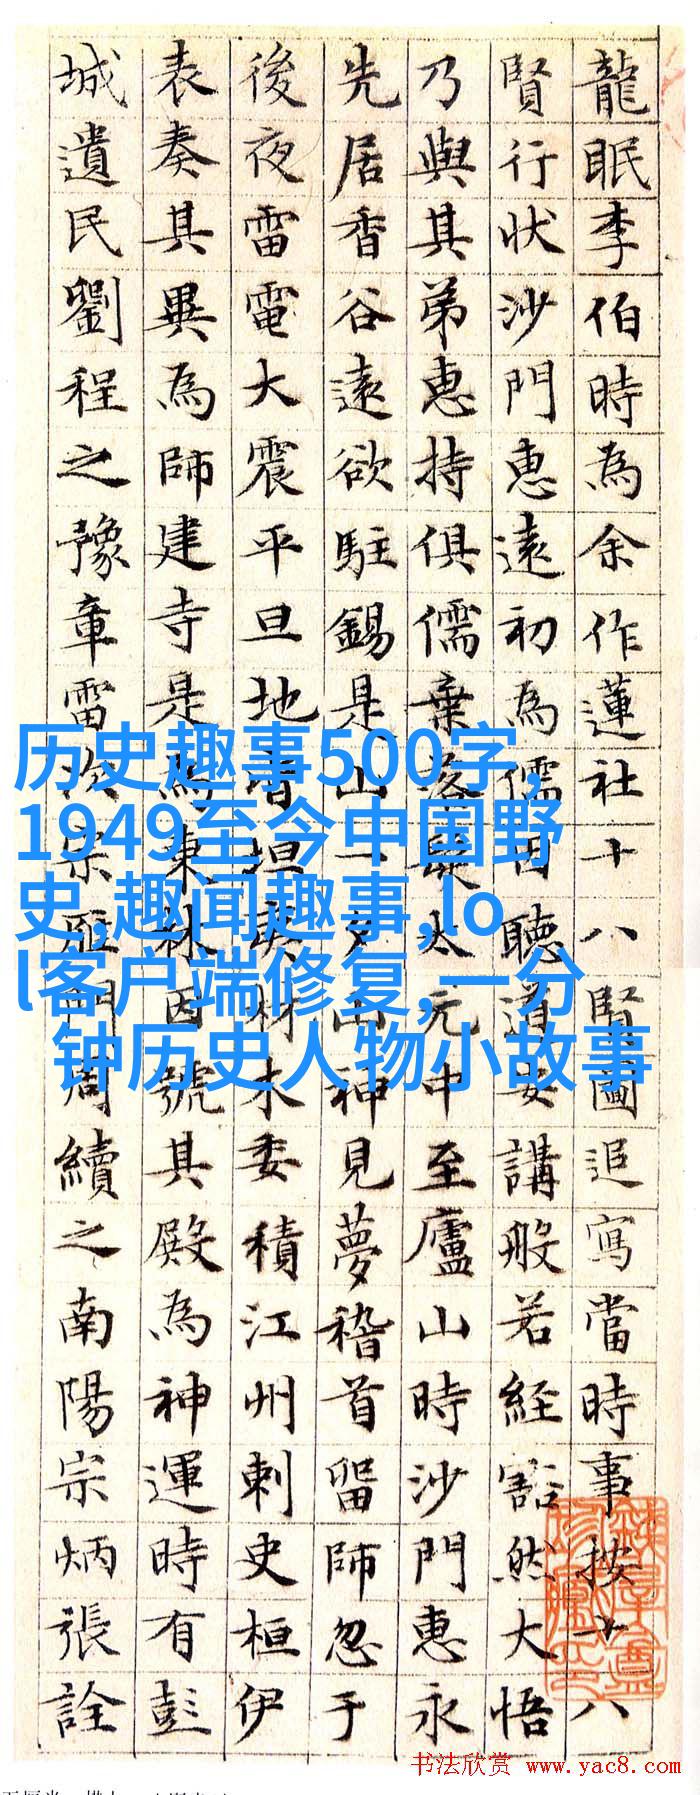 龍眠李伯時為余作蓮社十八賢圖追寫當時事按十八
賢行狀沙門惠遠初為儒因聽道安講般若経豁然大悟
乃與其弟惠持俱儒棄落髮太元中至廬山時沙門惠永
先居香谷遠欲駐錫是山一夕山神見夢稽首留師忽于
後夜雷電大震平旦地皆坦夷材木委積江州刺史桓伊
表奏其異為師建寺是為東林因號其殿為神運時有彭
城遺民劉程之豫章雷次宗雁門周續之南陽宗炳張詮
历史趣事500字,
1949至今中国野
史,趣闻趣事,lo
l客户端修复,一分
钟历史人物小故事
书法欣赏 www.yac8.com